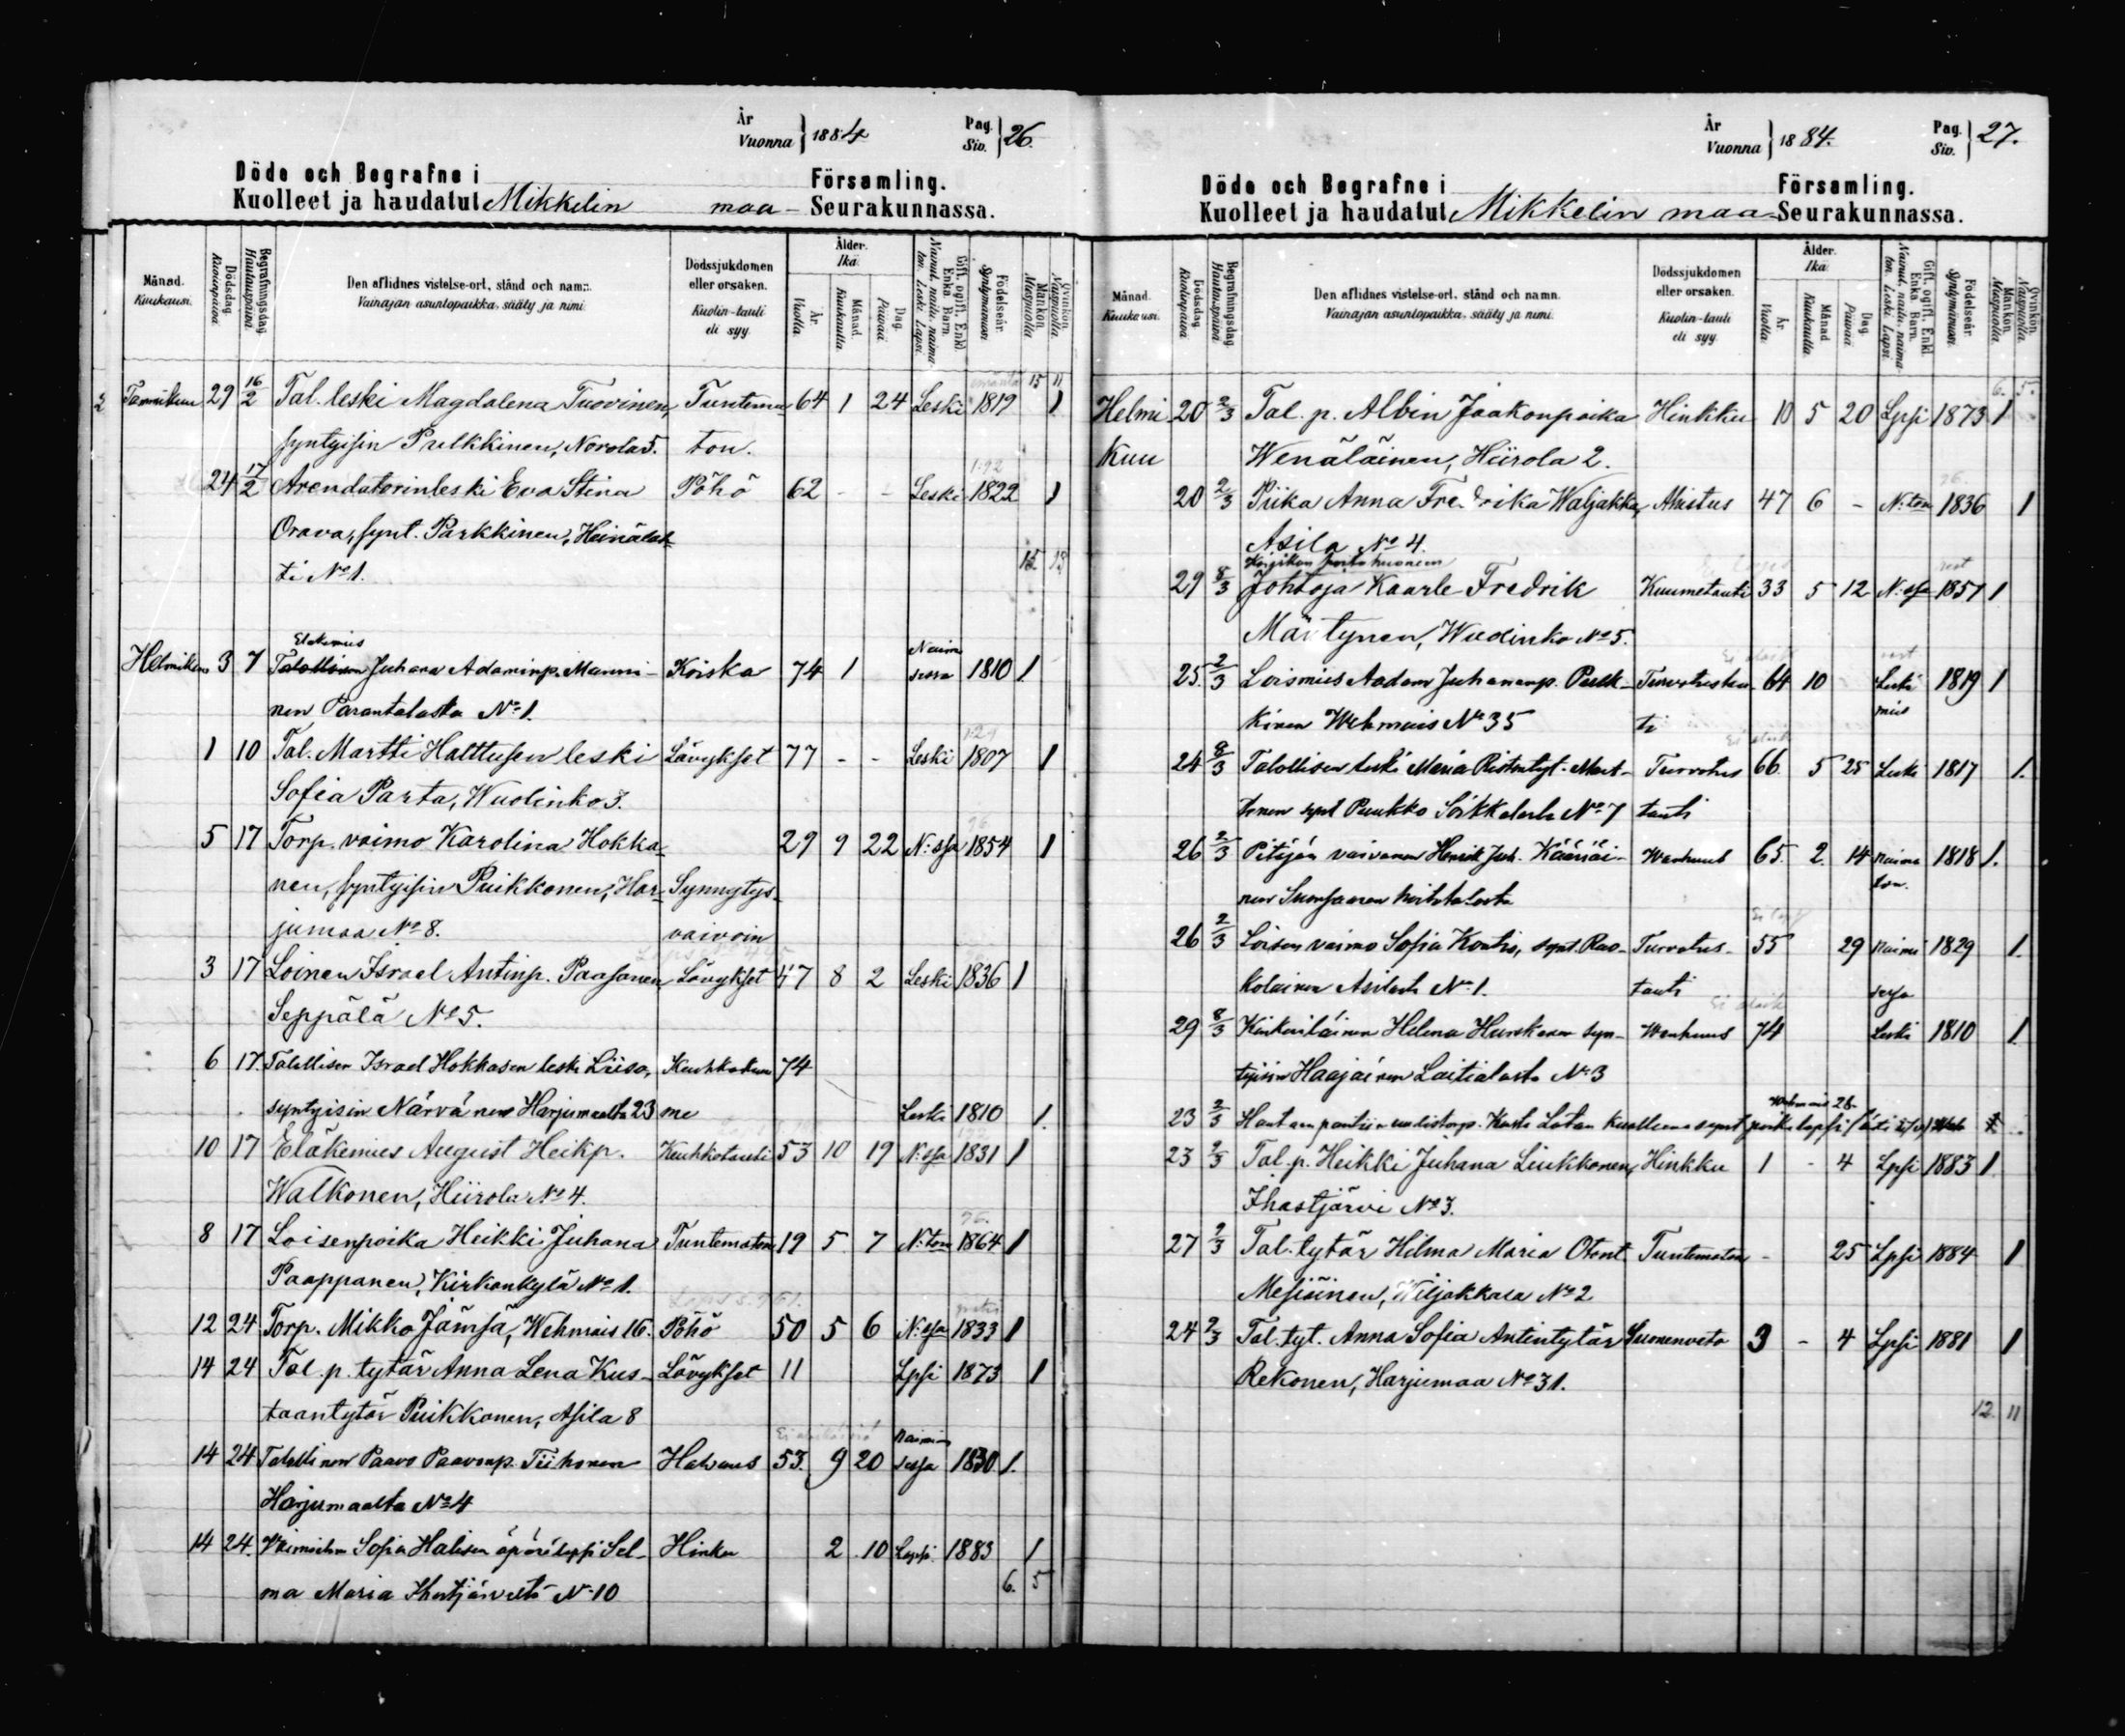 År
Vuonna } 1884
Pag.
Siv. } 26.
Döde och Begrafne i Församling.
Kuolleet ja haudatut Mikkelin maa- Seurakunnassa.
Månad. Kuukausi.
Dödsdag. Kuolinpäivä
Begrafningsdag. Hautauspäivä.
Den aflidnes vistelse-ort, stånd och namn.
Vainajan asuntopaikka, sääty ja nimi.
Dödssjukdomen eller orsaken.
Kuolin-tauti eli syy.
Ålder. Ikä.
År. Vuotta.
Månad. Kuukautta
Dag. Päivää
Gift, ogift, Enkl. Enka. Barn.
Nainut, naitu, naimaton. Leski. Lapsi.
Födelseår. Syntymävuosi.
Mankön. Miespuolia.
Qvinkön. Naispuolia.
15 11
Tammikuu 29 16/2 Tal. leski Magdalena Tuovinen, Tuntema- 64 1 24 Leski 1819 1
syntyisin Pulkkinen, Norola 5. ton.
24 17/2 Arendatorinleski Eva Stina Pöhö 62 - - Leski 1822 1
Orava, synt. Parkkinen, Heinälah-
ti No 1.
Eläkemies
Helmikuu 3 7 Juhana Adaminp. Manni- Koiska 74 1 Naimi sissa 1810 1.
nen Parantalasta No 1.
1 10 Tal. Martti Halttusen leski Lävykset 77 - - Leski 1807 1
Sofia Parta, Wuolinko 3.
5 17 Torp. vaimo Karolina Hokka- 29 9 22 N:ssa 1854 1
nen, syntyisin Puikkonen, Har- Synnytys-
jumaa No 8. vaivoin
3 17 Loinen Israel Antinp. Paasonen, Lävykset 47 8 2 Leski 1836 1
Seppälä No 5.
6 17. Talollisen Israel Hokkasen leski Liisa, 74
syntyisin Närvänen Harjumaalta 23 Leski 1810 1.
10 17 Eläkemies August Heikp. Keuhkotauti 53 10 19 N:ssa 1831 1
Walkonen, Hiirola No 4.
8 17 Loisenpoika Heikki Juhana Tuntematon 19 5 7 N:ton 1864 1
Paappanen, Kirkonkylä No 1.
12 24 Torp. Mikko Jämsä, Wehmais 16. Pöhö 50 5 6 N:ssa 1833 1
14 24 Tal. p. tytär Anna Lena Kus- Lävykset 11 Lpsi 1873 1
taantytär Puikkonen, Asila 8
14 24 Talollinen Paavo Paavonp. Tiihonen Halvaus 53. 9 20 Naimi sissa 1830 1.
Harjumaalta No 4
14 24. Sofia Halisen äpärälapsi Sel- Hinku 2 10 Lapsi 1883 1
ma Maria Ihastjärveltä No 10 6. 5
År
Vuonna } 1884.
Pag.
Siv. } 27.
Döde och Begrafne i Församling.
Kuolleet ja haudatut Mikkelin maa- Seurakunnassa.
Månad. Kuukausi.
Dödsdag. Kuolinpäivä
Begrafningsdag. Hautauspäivä.
Den aflidnes vistelse-ort, stånd och namn.
Vainajan asuntopaikka, sääty ja nimi.
Dödssjukdomen eller orsaken.
Kuolin-tauti eli syy.
Ålder. Ikä.
År. Vuotta.
Månad Kuukautta
Dag. Päivää
Gift, ogift, Enkl. Enka. Barn.
Nainut, naitu, naimaton. Leski. Lapsi.
Födelseår. Syntymävuosi.
Mankön. Miespuolia.
Qvinkön. Naispuolia.
6. 5.
Helmi 20 2/3 Tal. p. Albin Jaakonpoika Hinkku 10 5 20 Lpsi 1873 1
Kuu Wenäläinen, Hiirola 2.
20 2/3 Piika Anna Fredrika Waljakka, Ahistus 47 6 - N:ton 1836 1
Asila No 4.
29 8/3 Johtaja Kaarle Fredrik Kuumetauti 33 5 12 N:ssa 1851 1
Märtynen, Wuolinko No 5.
25. 2/3 Loismies Aadam Juhananp. Pulk- Turvotustau- 64 10 Leski mies 1819 1
kinen Wehmais No 35 ti
24 8/3 Talollisen leski Maria Ristontyt. Mart- Turvotus 66 5 25 Leski 1817 1.
tinen synt Puukko Soikkalasta No 7 tauti
26 2/3 Pitäjän vaivanen Henrik Juh. Kääriäi- Wanhuus 65. 2. 14 Naima ton. 1818 1.
nen
26 2/3 Loisen vaimo Sofia Kontio, synt. Turvotus- 55 29 Naimi 1829 1.
Asilasta No 1. tauti sissa
29 8/3 Helena Hurskanen syn- Wanhuus 74 Leski 1810 1.
tyisin Haajainen Laitialasta No 3
Wehmais 28.
23 2/3 Kuolleena synt poikalapsi
23 2/3 Tal. p. Heikki Juhana Liukkonen, Hinkku 1 - 4 Lpsi 1883 1
Ihastjärvi No 3.
27 2/3 Tal. tytär Hilma Maria Otont. Tuntematon - 25 Lpsi 1884 1
Mesiäinen, Wiljakkala No 2
24 2/3 Tal. tyt. Anna Sofia Antintytär Suonenveto 3 - 4 Lpsi 1881 1
Rekonen, Harjumaa No 31.
12. 11